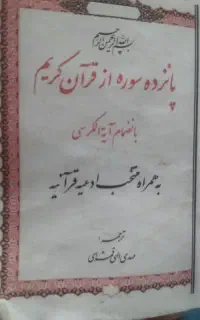 بسم الله الرحمن الرحیم
پانزده سوره از قرآن کریم
بانضمام آیة الکرسی
به همراه منتخب ادعیه قرآنیه
ترجمه:
مهدی الهی قمشه‌ای